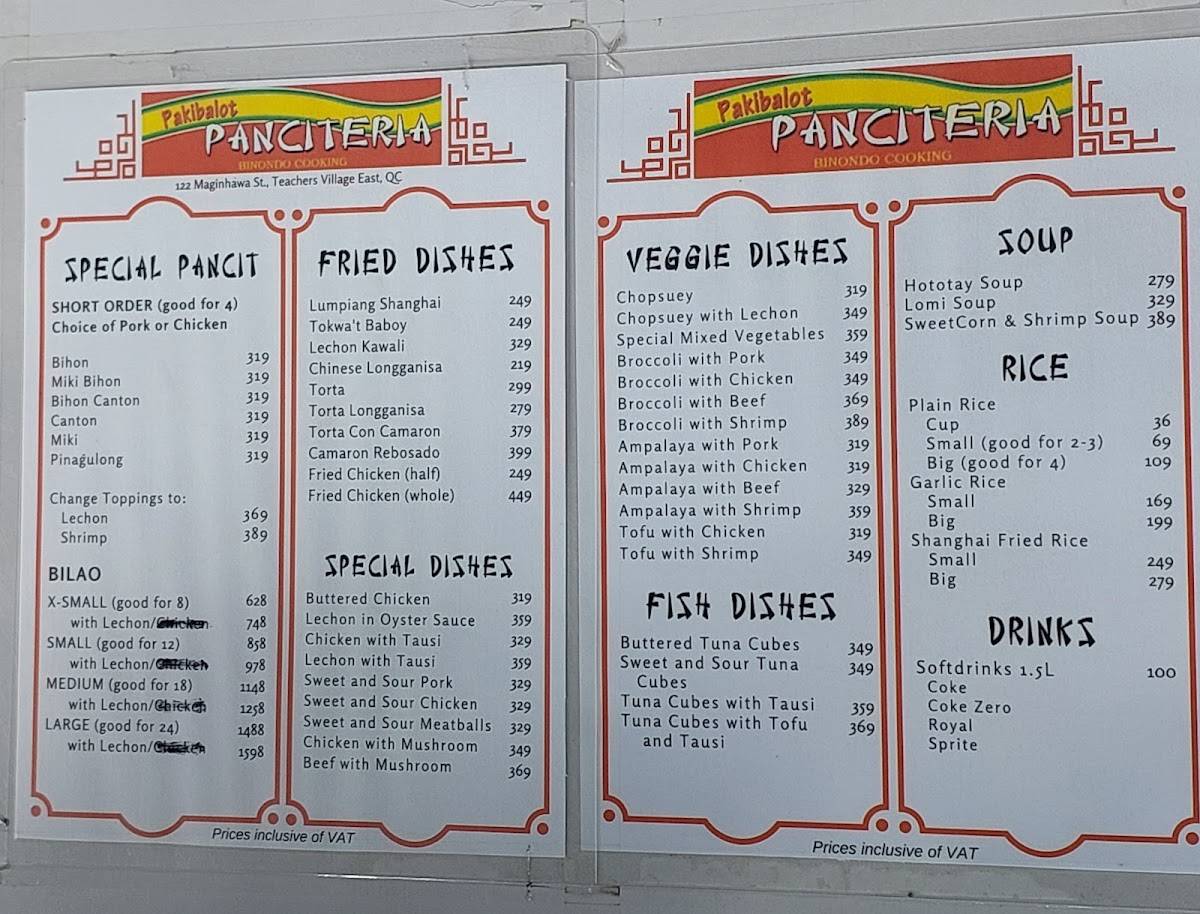 Pakibalot
PANCITERIA
BINONDO COOKING
122 Maginhawa St., Teachers Village East, QC
SPECIAL PANCIT
SHORT ORDER (good for 4)
Choice of Pork or Chicken
Bihon 319
Miki Bihon 319
Bihon Canton 319
Canton 319
Miki 319
Pinagulong 319
Change Toppings to:
Lechon 369
Shrimp 389
BILAO
X-SMALL (good for 8) 628
with Lechon/Chicken 748
SMALL (good for 12) 858
with Lechon/Chicken 978
MEDIUM (good for 18) 1148
with Lechon/Chicken 1258
LARGE (good for 24) 1488
with Lechon/Chicken 1598
FRIED DISHES
Lumpiang Shanghai 249
Tokwa't Baboy 249
Lechon Kawali 329
Chinese Longganisa 219
Torta 299
Torta Longganisa 279
Torta Con Camaron 379
Camaron Rebosado 399
Fried Chicken (half) 249
Fried Chicken (whole) 449
SPECIAL DISHES
Buttered Chicken 319
Lechon in Oyster Sauce 359
Chicken with Tausi 329
Lechon with Tausi 359
Sweet and Sour Pork 329
Sweet and Sour Chicken 329
Sweet and Sour Meatballs 329
Chicken with Mushroom 349
Beef with Mushroom 369
Prices inclusive of VAT
Pakibalot
PANCITERIA
BINONDO COOKING
VEGGIE DISHES
Chopsuey 319
Chopsuey with Lechon 349
Special Mixed Vegetables 359
Broccoli with Pork 349
Broccoli with Chicken 349
Broccoli with Beef 369
Broccoli with Shrimp 389
Ampalaya with Pork 319
Ampalaya with Chicken 319
Ampalaya with Beef 329
Ampalaya with Shrimp 359
Tofu with Chicken 319
Tofu with Shrimp 349
FISH DISHES
Buttered Tuna Cubes 349
Sweet and Sour Tuna 349
Cubes
Tuna Cubes with Tausi 359
Tuna Cubes with Tofu 369
and Tausi
SOUP
Hototay Soup 279
Lomi Soup 329
SweetCorn & Shrimp Soup 389
RICE
Plain Rice
Cup 36
Small (good for 2-3) 69
Big (good for 4) 109
Garlic Rice
Small 169
Big 199
Shanghai Fried Rice
Small 249
Big 279
DRINKS
Softdrinks 1.5L 100
Coke
Coke Zero
Royal
Sprite
Prices inclusive of VAT